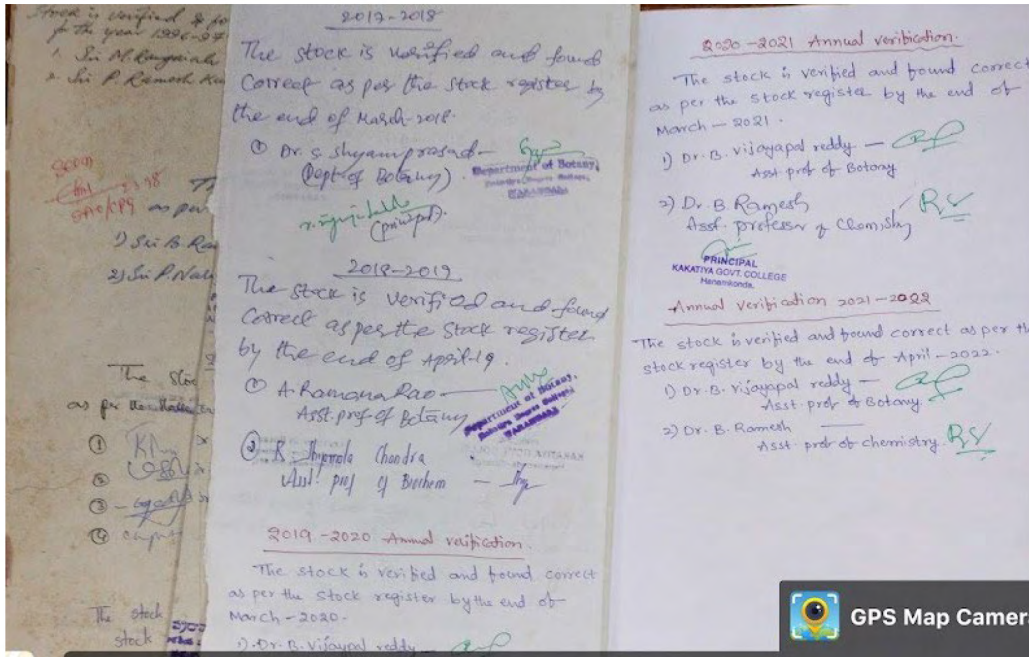 Stock is verified &
for the year 1996-97
1. Sri M. Rangaiah
2. Sri P. Ramesh
as per
1) Sri B.
2) Sri P.
The
as per
①
②
③
④
The stock
stock
2017-2018
The stock is verified and found
correct as per the stock register by
the end of March-2018.
① Dr. S. Shyamprasad
(Dept of Botany).
Department of Botany,
WARANGAL
(principal).
2018-2019
The stock is verified and found
correct as per the stock register
by the end of April-19.
① A. Ramana Rao
Asst. prof of Botany
Department of Botany,
WARANGAL
② K. Chandra
Asst. prof of Biochem
2019-2020 Annual verification.
The stock is verified and found correct
as per the stock register by the end of
March-2020.
1). Dr. B. Vijayapal reddy —
2020-2021 Annual verification.
The stock is verified and found correct
as per the stock register by the end of
March — 2021.
1) Dr. B. Vijayapal reddy —
Asst. prof of Botany
2) Dr. B Ramesh
Asst. professor of Chemistry
PRINCIPAL
KAKATIYA GOVT. COLLEGE
Hanamkonda.
Annual verification 2021-2022
The stock is verified and found correct as per the
stock register by the end of April-2022.
1) Dr. B. Vijayapal reddy —
Asst. prof of Botany.
2) Dr. B. Ramesh
Asst. prof of chemistry.
GPS Map Camera